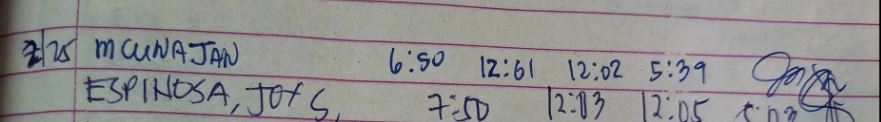 2/25 MCUNAJAN 6:50 12:01 12:02 5:39
ESPINOSA, JOY S. 7:50 12:03 12:05 5:03